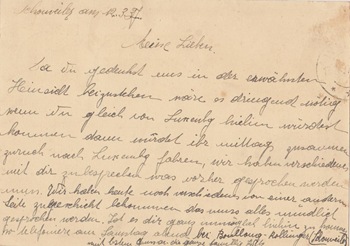 Schouweiler den 12.3.
Meine Lieben.
Da du gedenkst uns in der erwähnten
Hinsicht beizustehen wäre es dringend nötig
wenn du gleich von Luxembg hiehin würdest
kommen dann würdet ihr mittags zusammen
zurück nach Luxembg fahren, wir haben verschiedenes
mit dir zu besprechen was vorher gesprochen werden
muss. Wir haben heute noch verschiedenes von einer andern
Seite zugeschickt bekommen das muss alles mündlich
gesprochen werden. Ist es dir ganz unmöglich hiehin zu kommen
so telefoniere am Samstag abend bei Hollinger
mit besten Grüssen die ganze Familie